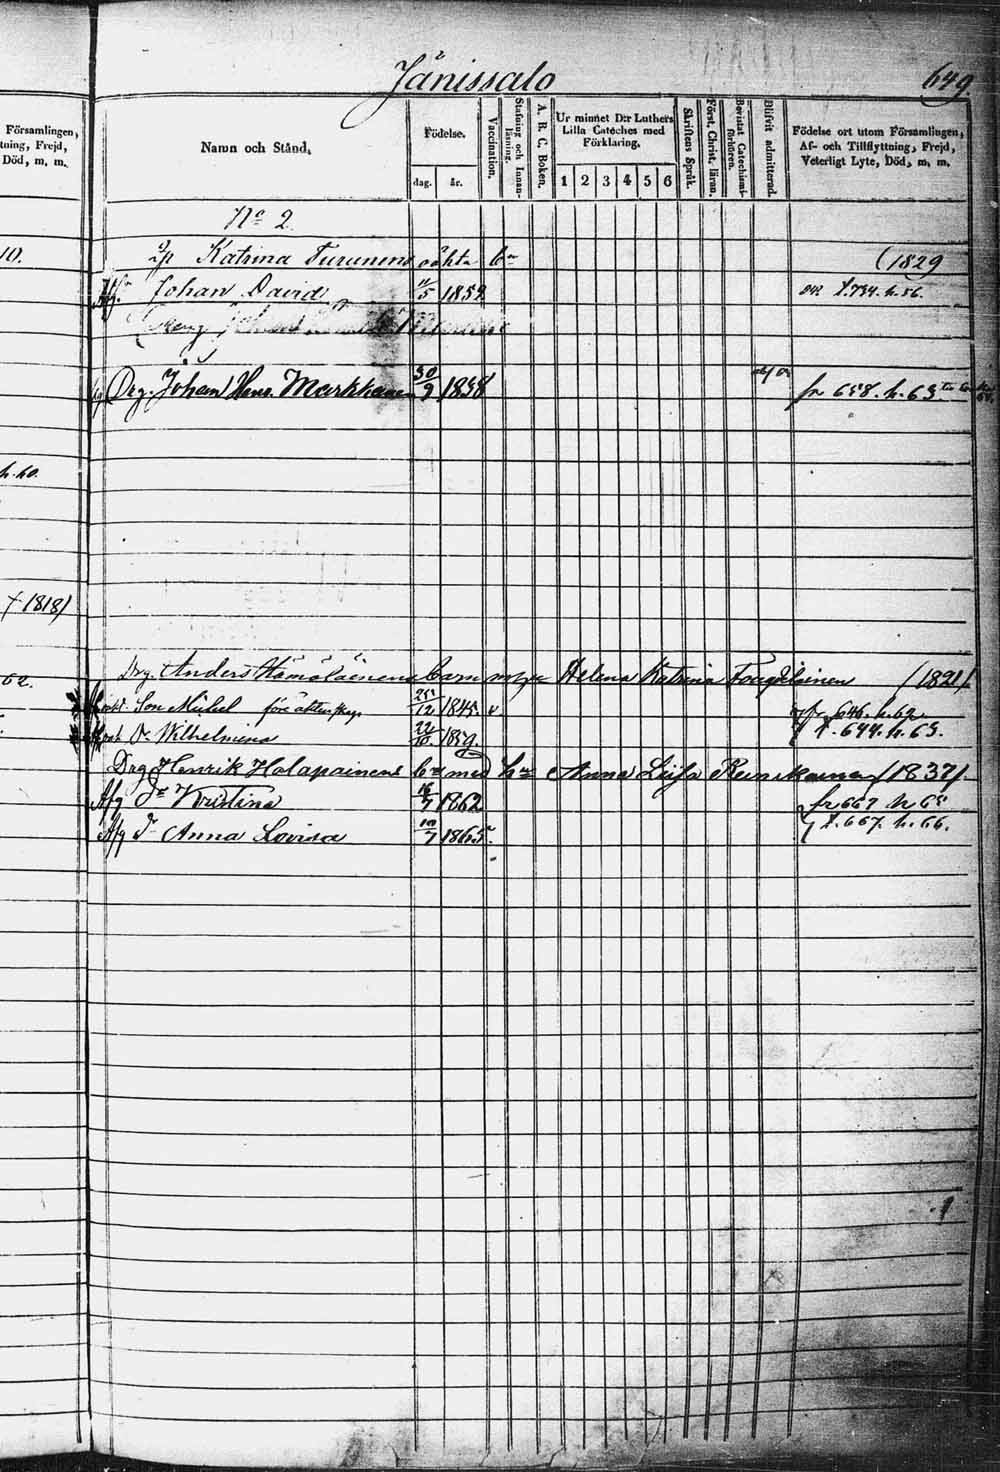 Jänissalo
649.
Församlingen,
tning, Frejd,
Död, m. m.
Namn och Stånd.
Födelse.
dag. år.
Vaccination.
Stafning och Innan-
läsning.
A. B. C. Boken.
Ur minnet D:r Luthers
Lilla Cateches med
Förklaring.
1 2 3 4 5 6
Skriftens Språk.
Först. Christ. läran.
Bevistat Catechismi-
förhören.
Blifvit admitterad.
Födelse ort utom Församlingen,
Af- och Tillflyttning, Frejd,
Veterligt Lyte, Död, m. m.
No 2.
Katrina Turunens oäkta bn (1829
Johan David 11/5 1852 t. 734. h. 56.
Drg. Johan Henr. Markkanen 30/9 1838 fr 658. h. 63
h. 60.
† 1818)
Drg. Anders Hämäläinens barn m Helena Katrina (1821).
62.
Son Mickel 25/12 1845. v fr 646. h. 62
Dr Wilhelmina 22/10 1859. t. 644. h. 63.
Drg Henrik Halapainens bn med hu Anna Liisa (1837).
Afg Dr Kristina 16/7 1862 fr 667 h 65
Afg Dr Anna Lovisa 10/7 1865. t. 667. h. 66.